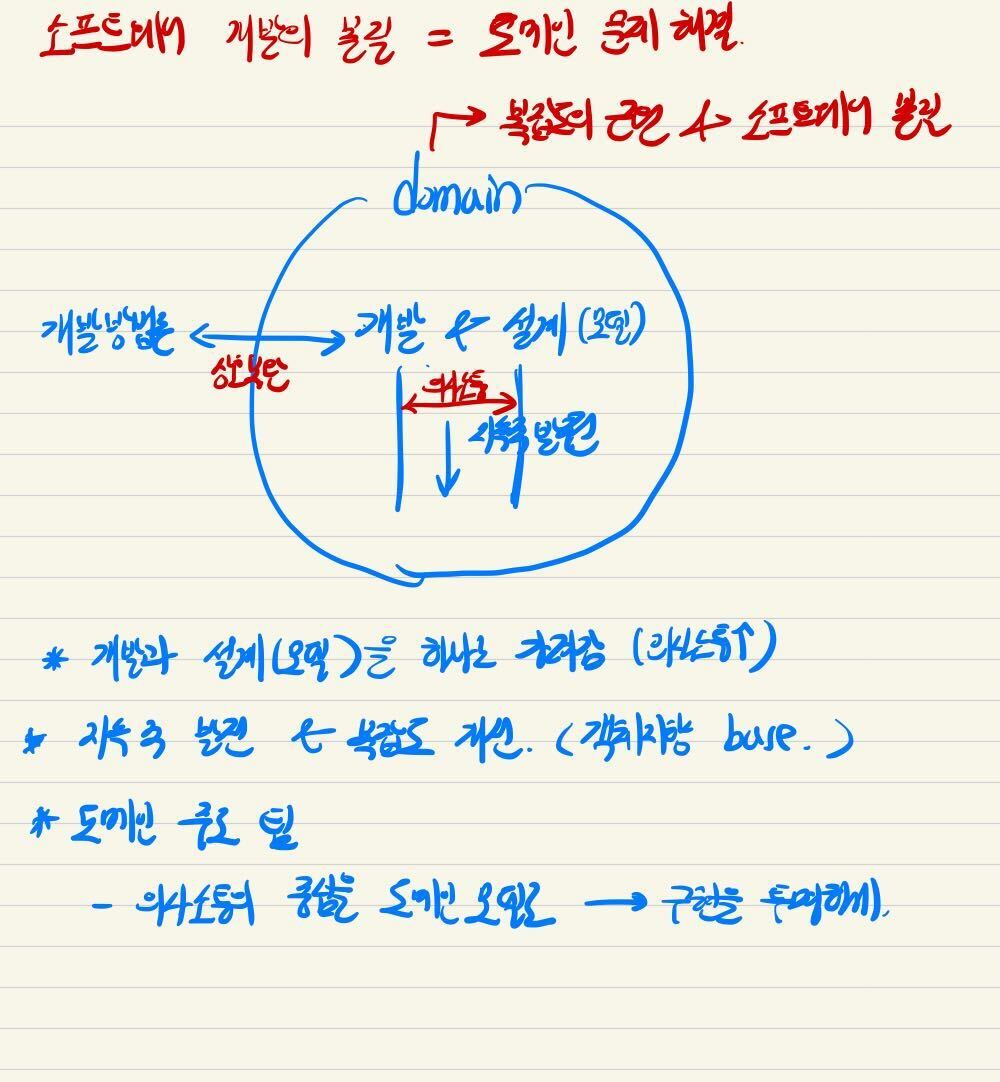 소프트웨어 개발의 본질 = 도메인 문제 해결.
복잡도의 근원 <-> 소프트웨어 본질
domain
개발방법론 개발 & 설계(모델)
상호보완 의사소통
지속적 발전
* 개발과 설계(모델)을 하나로 (의사소통↑)
* 지속적 발전 & 복잡도 개선. (객체지향 base.)
* 도메인 주도 팀
- 의사소통의 중심을 도메인 모델로 → 구현을 투명하게.